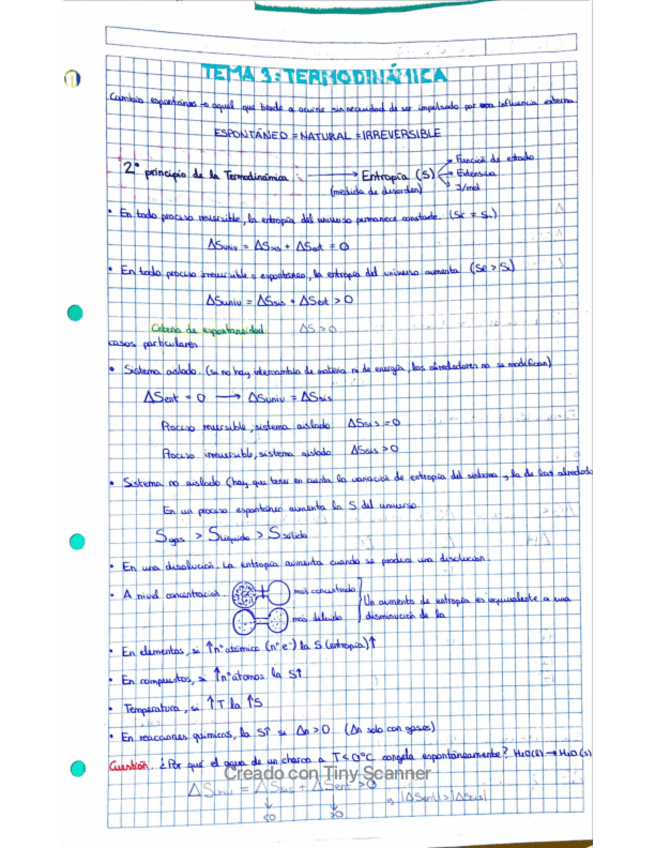 1
TEMA 3: TERMODINÁMICA
Cambio espontáneo → aquel que tiende a ocurrir sin necesidad de ser impulsado por una influencia externa.
ESPONTÁNEO = NATURAL = IRREVERSIBLE
2º principio de la Termodinámica → Entropía (S) → Función de estado
(medida de desorden) → Extensiva
→ J/mol
• En todo proceso reversible, la entropía del universo permanece constante. (Sf = So)
ΔSuniv = ΔSsis + ΔSent = 0
• En todo proceso irreversible o espontáneo, la entropía del universo aumenta (Sf > Si)
ΔSuniv = ΔSsis + ΔSent > 0
Criterio de espontaneidad ΔS > 0
casos particulares
• Sistema aislado. (si no hay intercambio de materia ni de energía, los alrededores no se modifican)
ΔSent = 0 → ΔSuniv = ΔSsis
Proceso reversible, sistema aislado ΔSsis = 0
Proceso irreversible, sistema aislado ΔSsis > 0
• Sistema no aislado (hay que tener en cuenta la variación de entropía del sistema y la de los alrededo
En un proceso espontáneo aumenta la S del universo
Sgas > Slíquido > Ssólido
• En una disolución. La entropía aumenta cuando se produce una disolución.
• A nivel concentración más concentrado
más diluido
Un aumento de entropía es equivalente a una
disminución de la
• En elementos, si ↑nº atómico (nº e⁻) la S (entropía)↑
• En compuestos, si ↑nº átomos la S↑
• Temperatura, si ↑T la ↑S
• En reacciones químicas, la S↑ si Δn > 0 (Δn solo con gases)
Cuestión. ¿Por qué el agua de un charco a T<0ºC congela espontáneamente? H2O(l) → H2O(s)
Creado con Tiny Scanner
ΔSuniv = ΔSsis + ΔSent > 0
<0 >0 |ΔSent| > |ΔSsis|